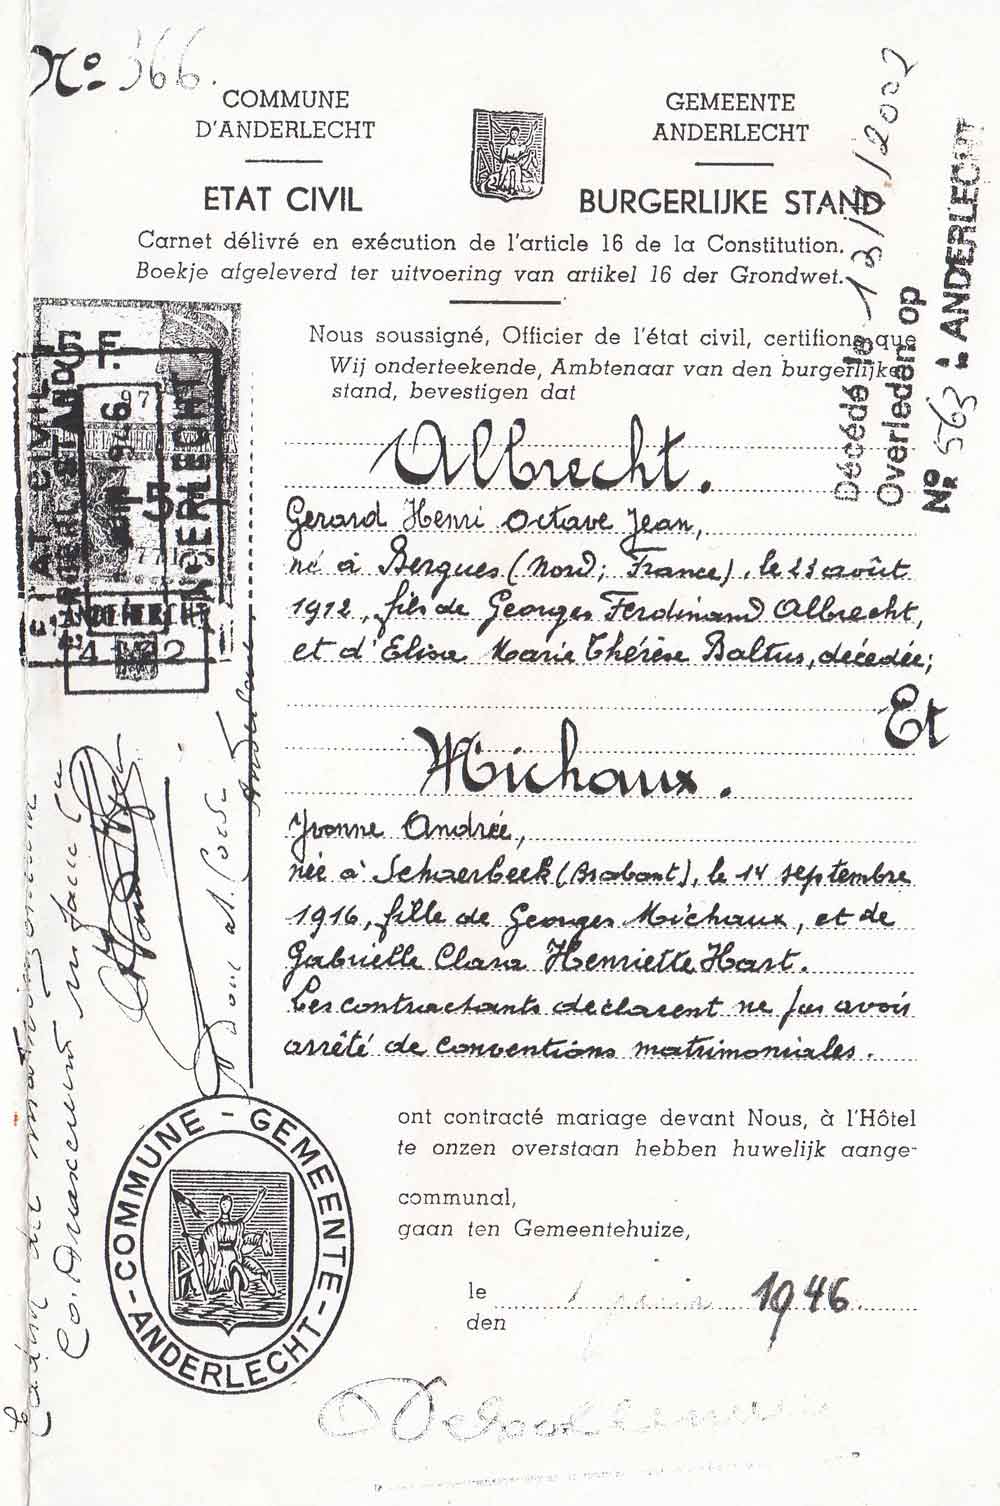 No 366.
COMMUNE
D'ANDERLECHT
GEMEENTE
ANDERLECHT
ETAT CIVIL
BURGERLIJKE STAND
Carnet délivré en exécution de l'article 16 de la Constitution.
Boekje afgeleverd ter uitvoering van artikel 16 der Grondwet.
Nous soussigné, Officier de l'état civil, certifions que
Wij onderteekende, Ambtenaar van den burgerlijken
stand, bevestigen dat
Albrecht.
Gerard Henri Octave Jean,
né à Bergues (Nord; France), le 23 août
1912, fils de Georges Ferdinand Albrecht,
et d'Elisa Marie Thérèse Baltus, décédée;
Et
Michaux.
Yvonne Andrée,
née à Schaerbeek (Brabant), le 14 septembre
1916, fille de Georges Michaux, et de
Gabrielle Clara Henriette Hart.
Les contractants déclarent ne pas avoir
arrêté de conventions matrimoniales.
ont contracté mariage devant Nous, à l'Hôtel
te onzen overstaan hebben huwelijk aange-
communal,
gaan ten Gemeentehuize,
le 1 juin 1946
den
COMMUNE - GEMEENTE - ANDERLECHT -
Décédé le
Overleden op
No 563 à ANDERLECHT
5 F.
ETAT CIVIL
BURGERL. STAND
1946
ANDERLECHT
ANDERLECHT